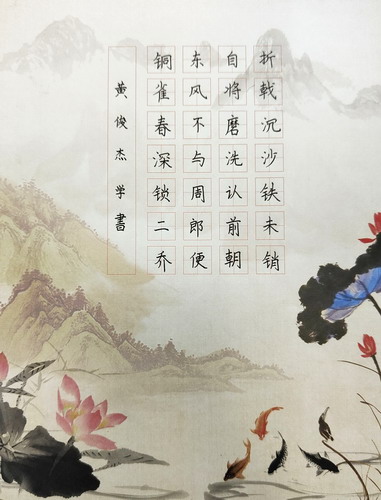 折戟沉沙铁未销
自将磨洗认前朝
东风不与周郎便
铜雀春深锁二乔
黄俊杰学書